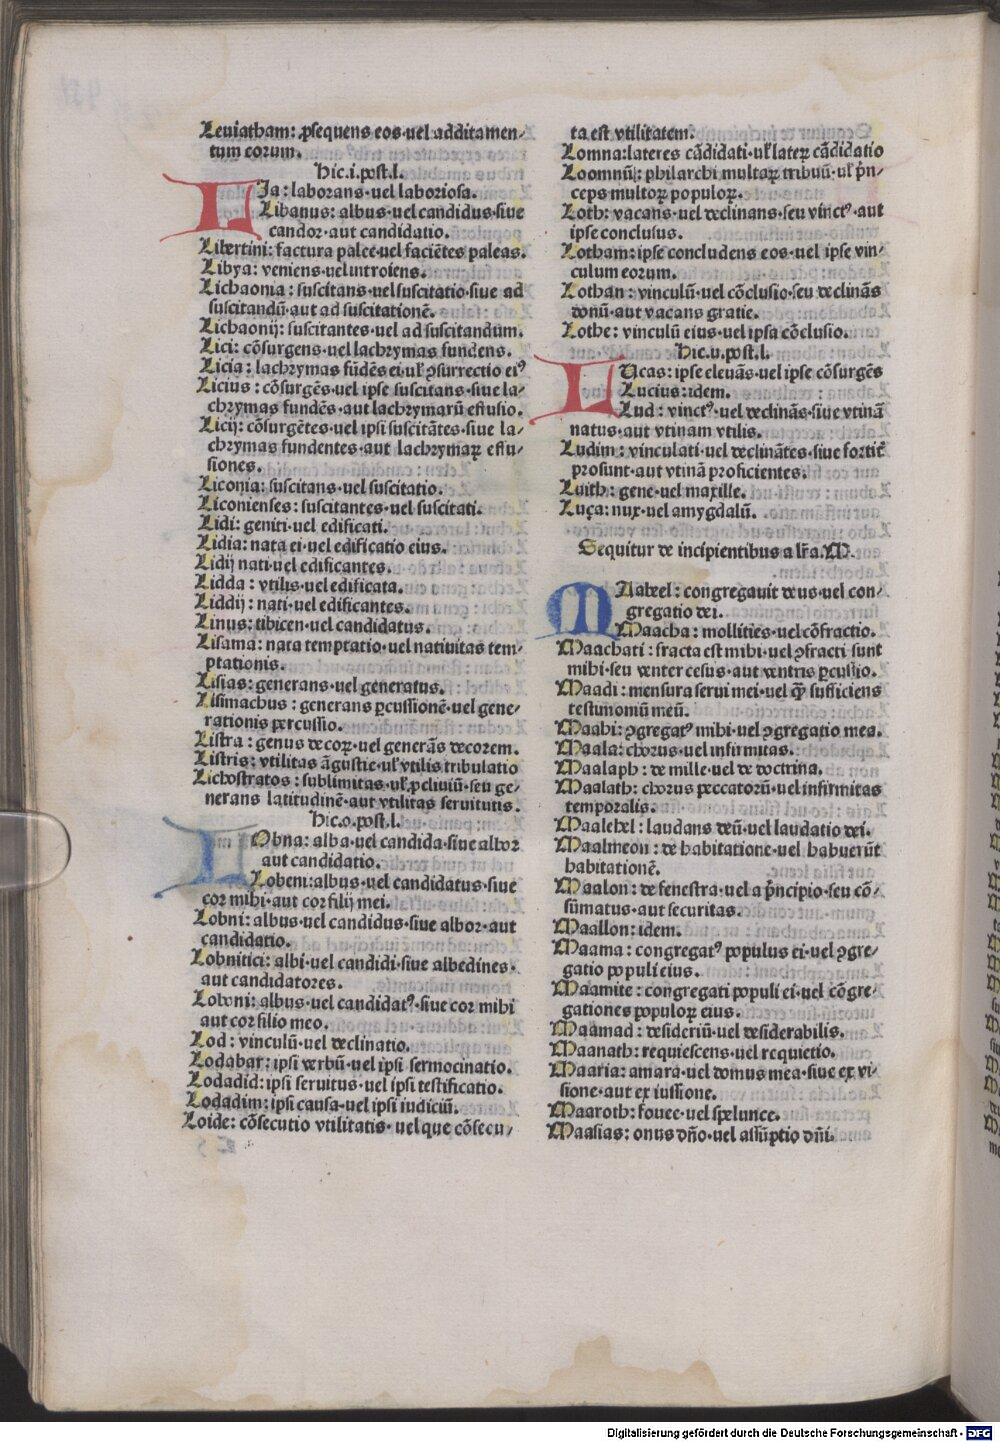 Leuiatham: ꝓsequens eos·uel additamen⸗
tum eorum.
Hic.i.post.l.
LIa: laborans·uel laboriosa.
Libanus: albus·uel candidus·siue
candor·aut candidatio.
Libertini: factura palee·uel faciētes paleas.
Libya: veniens·uel introiens.
Lichaonia: suscitans·uel suscitatio·siue ad
suscitandū·aut ad suscitationē.
Lichaonij: suscitantes·uel ad suscitandum.
Lici: cōsurgens·uel lachrymas fundens.
Licia: lachrymas fūdēs ei·ul' ꝯsurrectio eiꝰ
Licius: cōsurgēs·uel ipse suscitans·siue la⸗
chrymas fundēs·aut lachrymarū effusio.
Licij: cōsurgētes·uel ipsi suscitātes·siue la⸗
chrymas fundentes·aut lachrymaꝝ effu⸗
siones.
Liconia: suscitans·uel suscitatio.
Liconienses: suscitantes·uel suscitati.
Lidi: geniti·uel edificati.
Lidia: nata ei·uel edificatio eius.
Lidij nati·uel edificantes.
Lidda: vtilis·uel edificata.
Liddij: nati·uel edificantes.
Linus: tibicen·uel candidatus.
Lisama: nata temptatio·uel natiuitas tem⸗
ptationis.
Lisias: generans·uel generatus.
Lisimachus: generans ꝑcussionē·uel gene⸗
rationis percussio.
Listra: genus decoꝝ·uel generās decorem.
Listris: vtilitas āgustie·ul' vtilis tribulatio
Lichostratos: sublimitas·ul' ꝓcliuiū·seu ge⸗
nerans latitudinē·aut vtilitas seruitutis.
Hic.o.post.l.
LObna: alba·uel candida·siue albor
aut candidatio.
Lobeni: albus·uel candidatus·siue
cor mihi·aut cor filij mei.
Lobni: albus·uel candidus·siue albor·aut
candidatio.
Lobnitici: albi·uel candidi·siue albedines·
aut candidatores.
Loboni: albus·uel candidatꝰ·siue cor mihi
aut cor filio meo.
Lod: vinculū·uel declinatio.
Lodabar: ipsi verbū·uel ipsi sermocinatio.
Lodadid: ipsi seruitus·uel ipsi testificatio.
Lodadim: ipsi causa·uel ipsi iudiciū.
Loide: cōsecutio vtilitatis·uel que cōsecu⸗
ta est vtilitatem.
Lomna: lateres cādidati·ul' lateꝝ cādidatio
Loomnū: philarchi multaꝝ tribuū·ul' pn̄⸗
ceps multoꝝ populoꝝ.
Loth: vacans·uel declinans·seu vinctꝰ·aut
ipse conclusus.
Lotham: ipse concludens eos·uel ipse vin⸗
culum eorum.
Lothan: vinculū·uel cōclusio·seu declinās
donū·aut vacans gratie.
Lothe: vinculū eius·uel ipsa cōclusio.
Hic.u.post.l.
LUcas: ipse eleuās·uel ipse cōsurgēs
Lucius: idem.
Lud: vinctꝰ·uel declinās·siue vtinā
natus·aut vtinam vtilis.
Ludim: vinculati·uel declinātes·siue fortit̄
prosunt·aut vtinā proficientes.
Luith: gene·uel maxille.
Luça: nux·uel amygdalū.
Sequitur de incipientibus a lr̄a.M.
MAabeel: congregauit deus·uel con⸗
gregatio dei.
Maacha: mollities·uel cōfractio.
Maachati: fracta est mihi·uel ꝯfracti sunt
mihi·seu venter cesus·aut ventris ꝑcussio.
Maadi: mensura serui mei·uel qꝫ sufficiens
testimoniū meū.
Maahi: ꝯgregatꝰ mihi·uel ꝯgregatio mea.
Maala: chorus·uel infirmitas.
Maalaph: de mille·uel de doctrina.
Maalath: chorus peccatorū·uel infirmitas
temporalis.
Maalehel: laudans deū·uel laudatio dei.
Maalmeon: de habitatione·uel habuerūt
habitationē.
Maalon: de fenestra·uel a pn̄cipio·seu cō⸗
sūmatus·aut securitas.
Maallon: idem.
Maama: congregatꝰ populus ei·uel ꝯgre⸗
gatio populi eius.
Maamite: congregati populi ei·uel cōgre⸗
gationes populoꝝ eius.
Maamad: desideriū·uel desiderabilis.
Maanath: requiescens·uel requietio.
Maaria: amara·uel domus mea·siue ex vi⸗
sione·aut ex iussione.
Maaroth: fouee·uel spelunce.
Maasias: onus dn̄o·uel assūptio dn̄i.
Digitalisierung gefördert durch die Deutsche Forschungsgemeinschaft - DFG